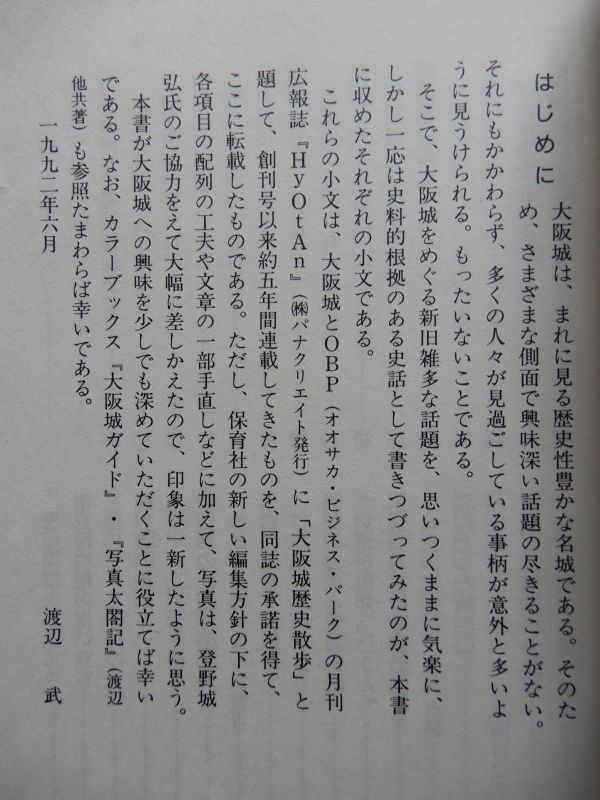 はじめに
大阪城は、まれに見る歴史性豊かな名城である。そのた
め、さまざまな側面で興味深い話題の尽きることがない。
それにもかかわらず、多くの人々が見過ごしている事柄が意外と多いよ
うに見うけられる。もったいないことである。
そこで、大阪城をめぐる新旧雑多な話題を、思いつくままに気楽に、
しかし一応は史料的根拠のある史話として書きつづってみたのが、本書
に収めたそれぞれの小文である。
これらの小文は、大阪城とOBP（オオサカ・ビジネス・パーク）の月刊
広報誌『HyOtAn』（㈱パナクリエイト発行）に「大阪城歴史散歩」と
題して、創刊号以来約五年間連載してきたものを、同誌の承諾を得て、
ここに転載したものである。ただし、保育社の新しい編集方針の下に、
各項目の配列の工夫や文章の一部手直しなどに加えて、写真は、登野城
弘氏のご協力をえて大幅に差しかえたので、印象は一新したように思う。
本書が大阪城への興味を少しでも深めていただくことに役立てば幸い
である。なお、カラーブックス『大阪城ガイド』・『写真太閤記』（渡辺
他共著）も参照たまわらば幸いである。
一九九二年六月
渡辺 武